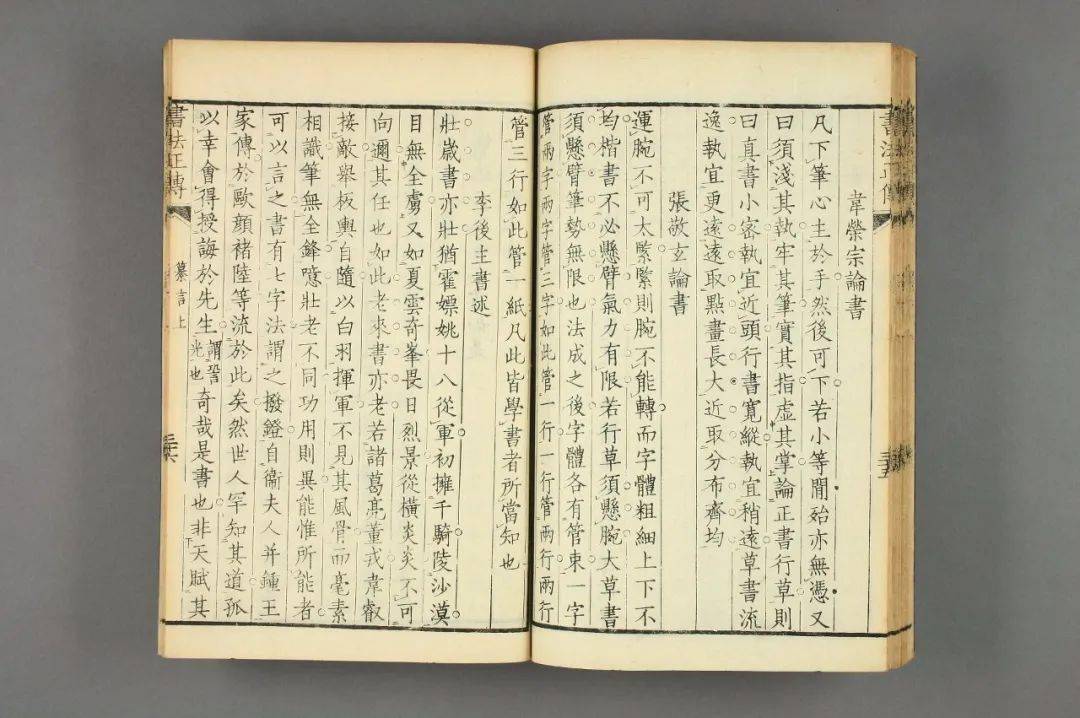 韋榮宗論書
凡下筆心主於手然後可下若小等閒始亦無憑又
曰須淺其執牢其筆實其指虛其掌論正書行草則
曰真書小密執宜近頭行書寬縱執宜稍遠草書流
逸執宜更遠遠取點畫長大近取分布齊均
張敬玄論書
運腕不可太緊緊則腕不能轉而字體粗細上下不
均楷書不必懸臂氣力有限若行草須懸腕大草書
須懸臂筆勢無限也法成之後字體各有管束一字
管兩字兩字管三字如此管一行一行管兩行兩行
書法正傳
三五
管三行如此管一紙凡此皆學書者所當知也
李後主書述
壯歲書亦壯猶霍嫖姚十八從軍初擁千騎陵沙漠
目無全虜又如夏雲奇峯畏日烈景從橫炎炎不可
向邇其任也如此老來書亦老若諸葛亮董戎韋叡
接敵舉板輿自隨以白羽揮軍不見其風骨而毫素
相識筆無全鋒噫壯老不同功用則異能惟所能者
可以言之書有七字法謂之撥鐙自衞夫人并鍾王
家傳於歐顏褚陸等流於此矣然世人罕知其道孤
以幸會得授誨於先生謂䛒光也奇哉是書也非天賦其
書法正傳
纂言上
三六